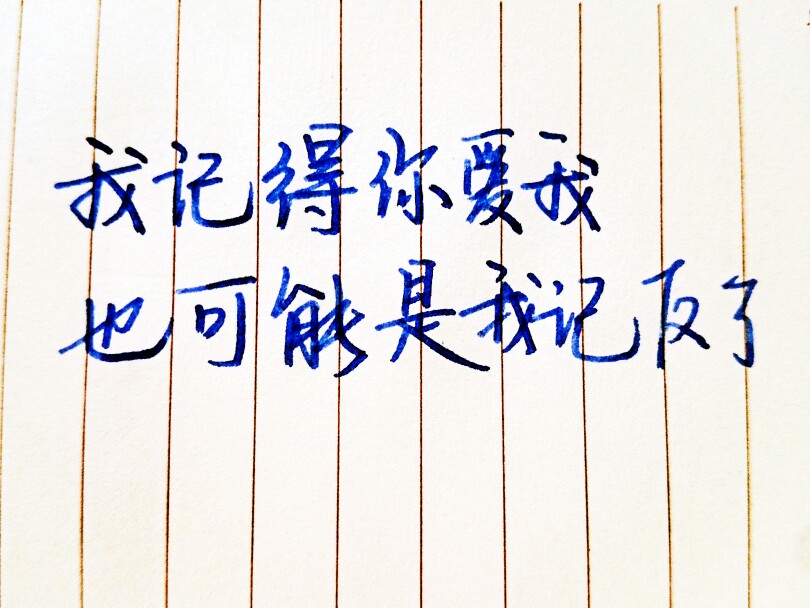 我记得你爱我
也可能是我记反了